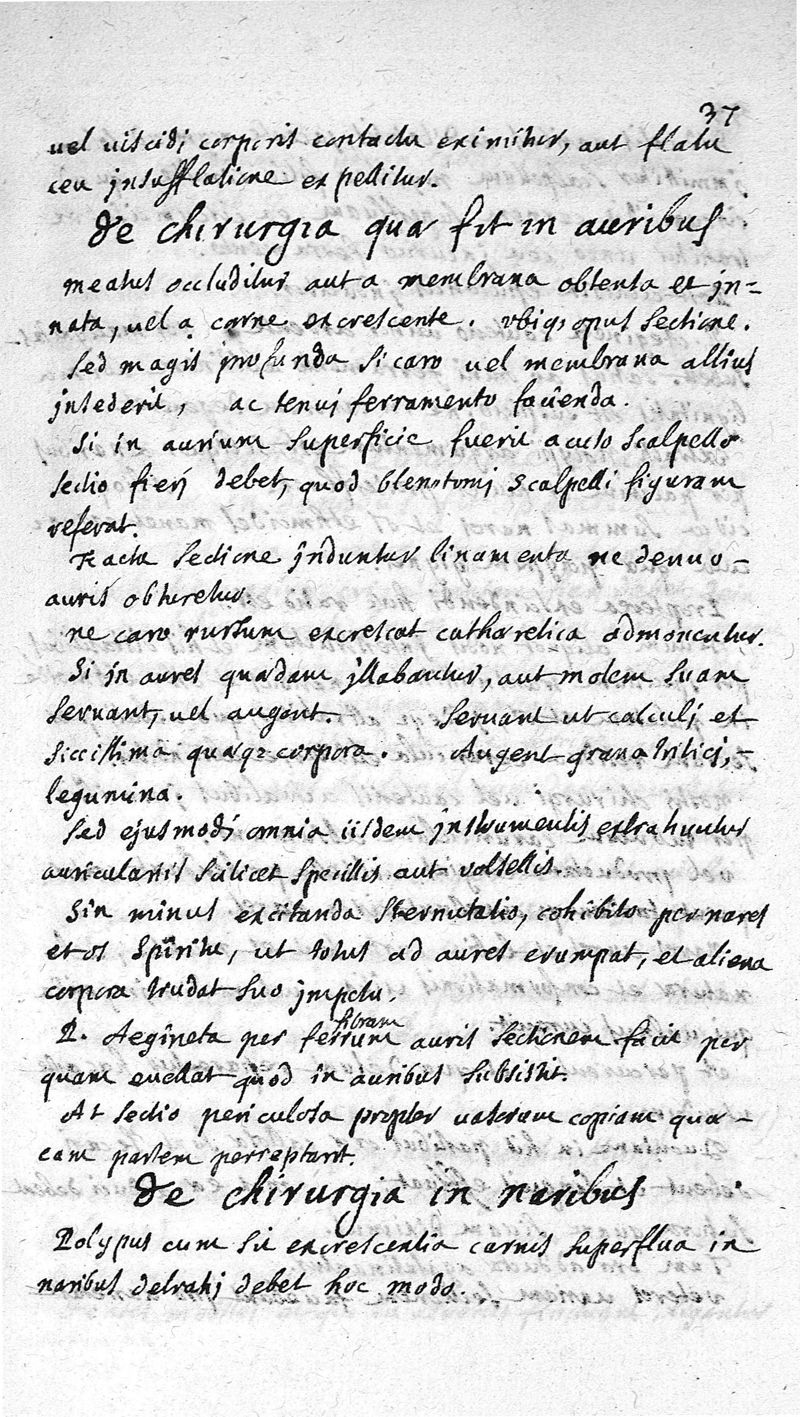 37
vel viscidi corporis contactu eximitur, aut flatu
ceu insufflatione expellitur.
De chirurgia quæ fit in auribus
meatus occluditur aut a membrana obtenta et in=
nata, vel a carne excrescente. vbiq; opus sectione.
Sed magis profunda si caro vel membrana altius
insederit, ac tenui ferramento facienda.
Si in aurium superficie fuerit acuto scalpello
sectio fieri debet, quod blenotomi scalpelli figuram
referat.
Facta sectione induntur linamenta ne denuo -
auris obturetur.
ne caro rursum excrescat catharetica admoneutur.
Si in aures quædam illabantur, aut molem suam
servant, vel augent. Servant ut calculi et
siccissima quæq; corpora. Augent grana tritici, -
legumina.
Sed ejusmodi omnia iisdem instrumentis extrahuntur
auricularijs scilicet specillis aut volsellis.
Sin minus excitanda sternutatio, cohibito per nares
et os spiritu, ut totus ad aures erumpat, et aliena
corpora trudat suo impetu.
P. Aegineta per ferrum fibram auris sectionem facit per
quam evellat quod in auribus subsistit.
At sectio periculosa propter vasorum copiam quæ -
eam partem perreptant.
De chirurgia in naribus
Polypus cum sit excrescentia carnis superflua in
naribus detrahi debet hoc modo.